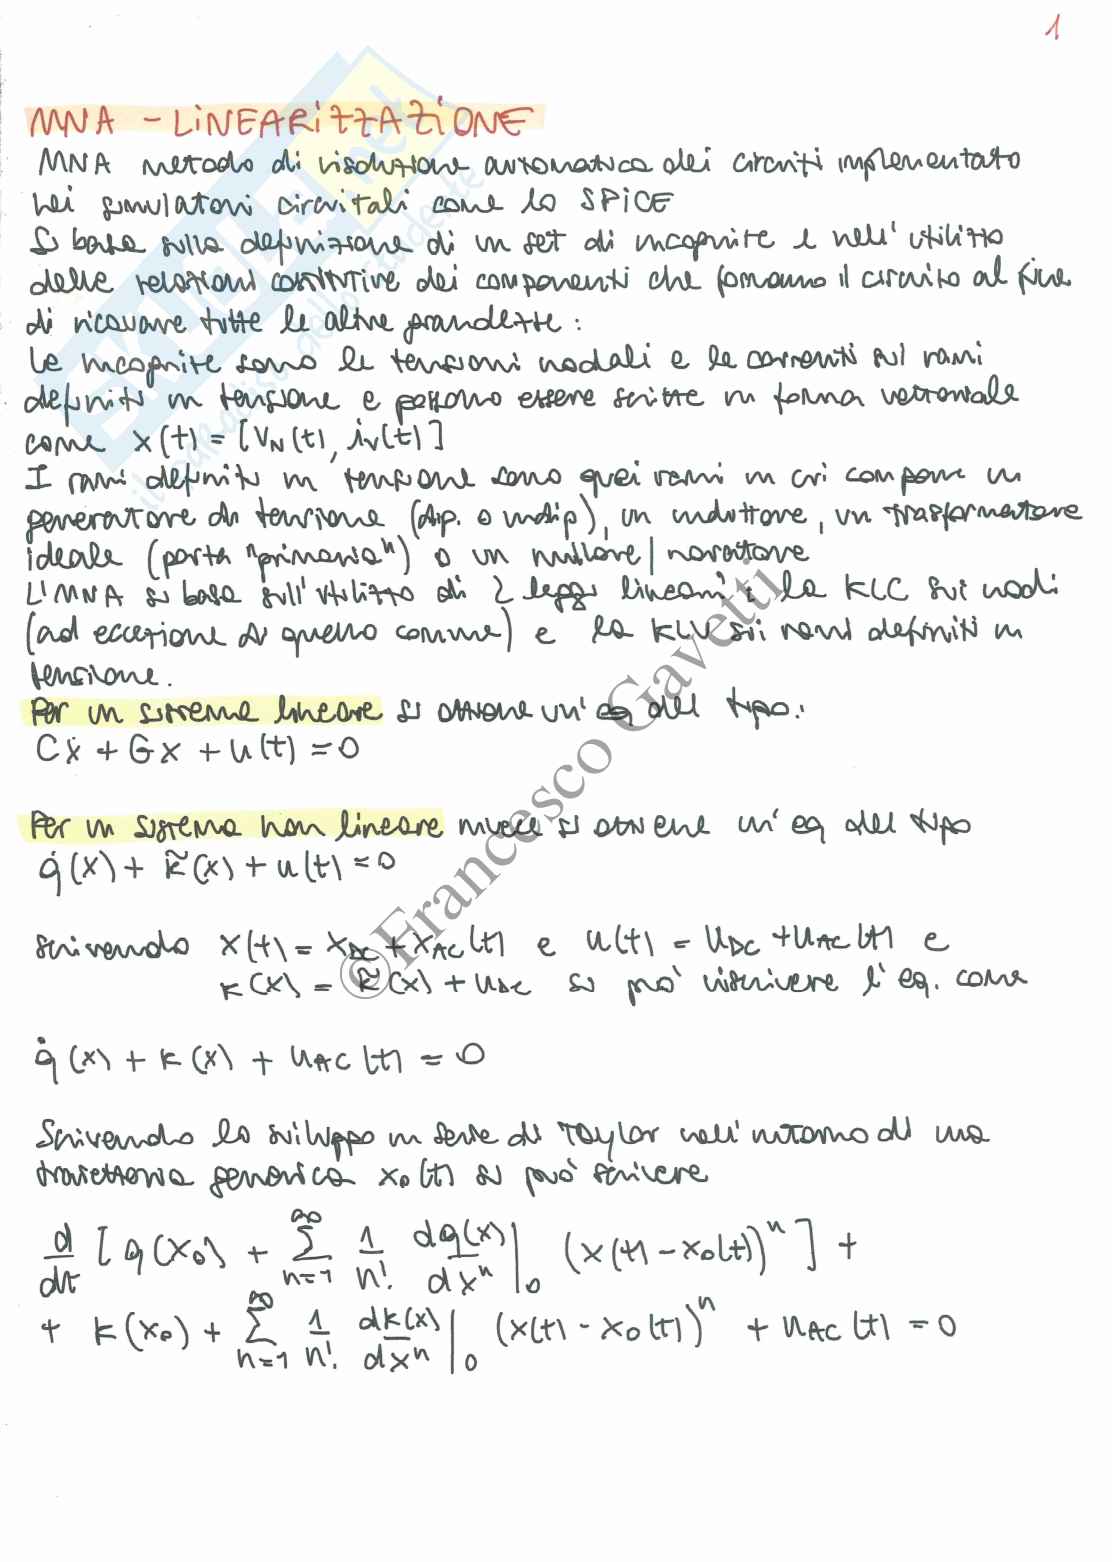 1
MNA - LINEARIZZAZIONE
MNA metodo di risoluzione automatica dei circuiti implementato
nei simulatori circuitali come lo SPICE
Si basa sulla definizione di un set di incognite e nell'utilizzo
delle relazioni costitutive dei componenti che formano il circuito al fine
di ricavare tutte le altre grandezze:
Le incognite sono le tensioni nodali e le correnti sui rami
definiti in tensione e possono essere scritte in forma vettoriale
come x(t) = [VN(t), iv(t)]
I rami definiti in tensione sono quei rami in cui compare un
generatore di tensione (dip. o indip), un induttore, un trasformatore
ideale (porta "primaria") o un nullore/noratore
L'MNA si basa sull'utilizzo di 2 leggi lineari: la KLC sui nodi
(ad eccezione di quello comune) e la KLV sui rami definiti in
tensione.
Per un sistema lineare si ottiene un'eq del tipo:
Cẋ + Gx + u(t) = 0
Per un sistema non lineare invece si ottiene un'eq del tipo
q̇(x) + k̃(x) + u(t) = 0
scrivendo x(t) = xDC + xAC(t) e u(t) = uDC + uAC(t) e
k(x) = k̃(x) + uDC si può riscrivere l'eq. come
q̇(x) + k(x) + uAC(t) = 0
Scrivendo lo sviluppo in serie di Taylor nell'intorno di una
traiettoria generica x0(t) si può scrivere
d/dt [q(x0) + ∑n=1^∞ 1/n! dq(x)/dx^n |0 (x(t) - x0(t))^n] +
+ k(x0) + ∑n=1^∞ 1/n! dk(x)/dx^n |0 (x(t) - x0(t))^n + uAC(t) = 0
©Francesco Gavetti
SKUOLA.net
il paradiso dello studente